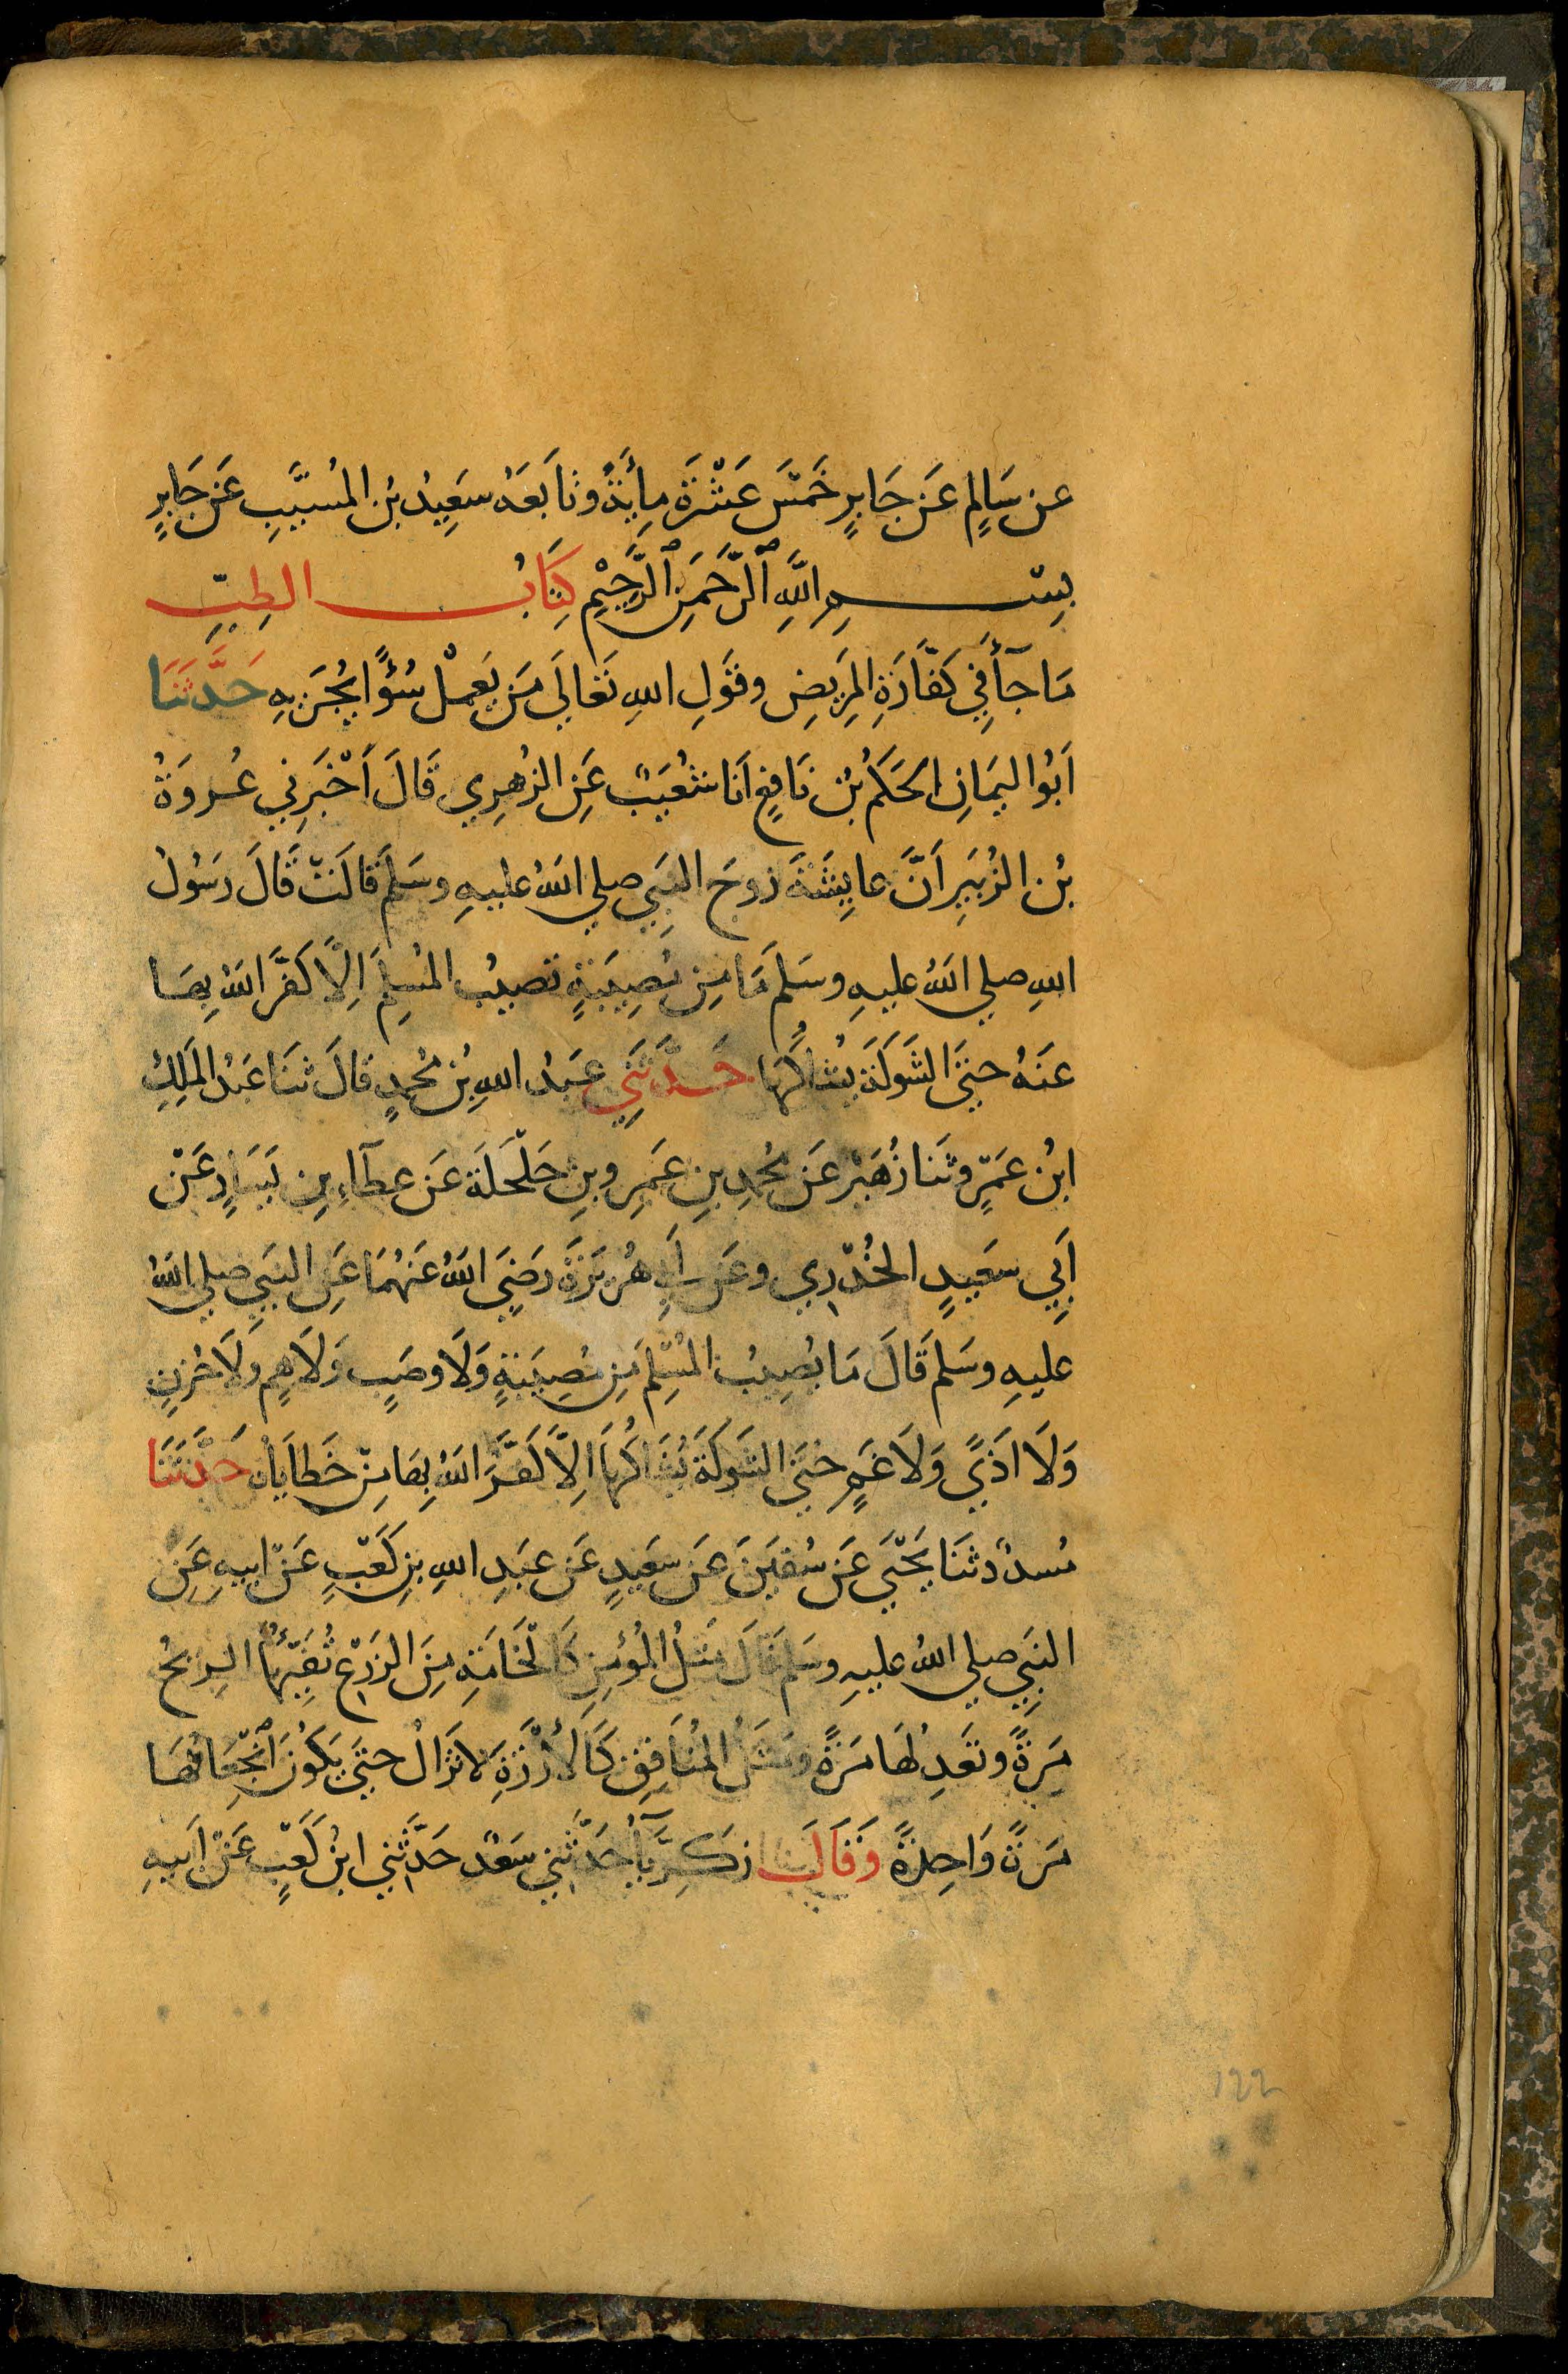 عن سَالِمٍ عَن جَابِرٍ خَمْسَ عَشْرَةَ مِأْيَةً وتَابَعَهُ سَعِيدُ بْن المُسَيَّبِ عَن جَابِرٍ
بِسْـــمِ اللَّهِ ٱلرَّحْمَنِ ٱلرَّحِيْمِ كِتَابُ الطِبِّ
مَا جآءَ فِي كَفَّارَةِ المَرِيضِ وقَولِ اللهِ تَعَالَي مَن يَعمَلْ سُوْءًا يُجْزَ بِهِ حَدَّثَنَا
اَبُوا ليَمَانِ الحَكَمُ بْنُ نَافِعٍ اَنَا شُعَيبٌ عَنِ الزُهرِي قَالَ اَخْبَرَنِي عُروَةُ
بْن الزُبَيرِ اَنَّ عايِشَةَ زوجَ النَبِي صلي اللهُ عليهِ وسَلمَ قالَتْ قَالَ رَسُولُ
اللهِ صلي اللهُ عليهِ وسَلمَ مَا مِن مُصِيبَةٍ تصيبُ المُسلِمَ اِلَّا كَفَّرَ اللهُ بِهَا
عَنهُ حتيَ الشَوكَة يُشاكُهَا حَدَّثَنِي عَبدُ اللهِ بْن مُحمدٍ قالَ ثنَا عَبْدُ المَلِكِ
ابْن عَمْرٍ وثَنا زُهَيرٌ عَن مُحمدِ بنِ عَمرِ وبنِ حَلْحَلَة عَن عطآءِ بنِ يَسَارٍ عَنْ
اَبِي سَعيدٍ الخُدْرِي وعَن اَبِي هُرَيرَةَ رَضِيَ اللهُ عَنْهُمَا عَنِ النَبِي صلي اللهُ
عليهِ وسَلمَ قَالَ مَا يُصِيبُ المُسْلِمَ مِن مُصِيبَةٍ وَلَا وصَبٍ وَلَا هَمٍ وَلَا حُزنٍ
وَلَا اَذَيً وَلَا غَمٍ حَتيَ الشَوكَةَ يُشَاكُهَا اِلَّا كَفَّرَ اللهُ بِهَا مِنْ خَطايَاهُ حَدَّثَنَا
مُسددٌ ثَنَا يَحْيَي عَن سُفيَنَ عَن سَعيدٍ عَن عبَدِ اللهِ بنِ كَعْبٍ عَنْ ابيهِ عَنِ
النَبِي صلي اللهُ عليهِ وسَلمَ قَالَ مَثلُ المُؤمِنِ كَالْخَامَةِ مِنَ الزَرْعِ تُفَيِّئُهَا الرِيحُ
مَرةً وتَعدِلُهَا مَرةً ومَثَلُ المُنَافِقِ كَالأَرْزَةِ لَا تزَالُ حتيَ يَكُونَ ٱنْجِعَافُهَا
مَرةً وَاحِدةً وَقَالَ زكَرِيَّآءُ حَدَّثَنِي سَعْدٌ حَدَّثَنِي ابْنُ كَعْبٍ عَنْ اَبيهِ
122